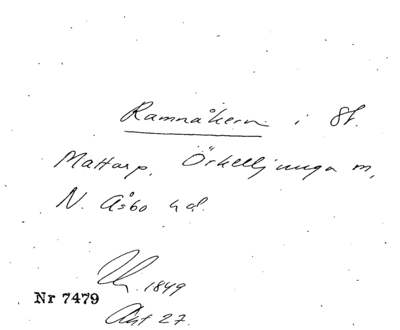 Ramnåkern i St.
Mattarp, Örkelljunga m,
N. Åsbo hd.
1849
Nr 7479
Akt 27.